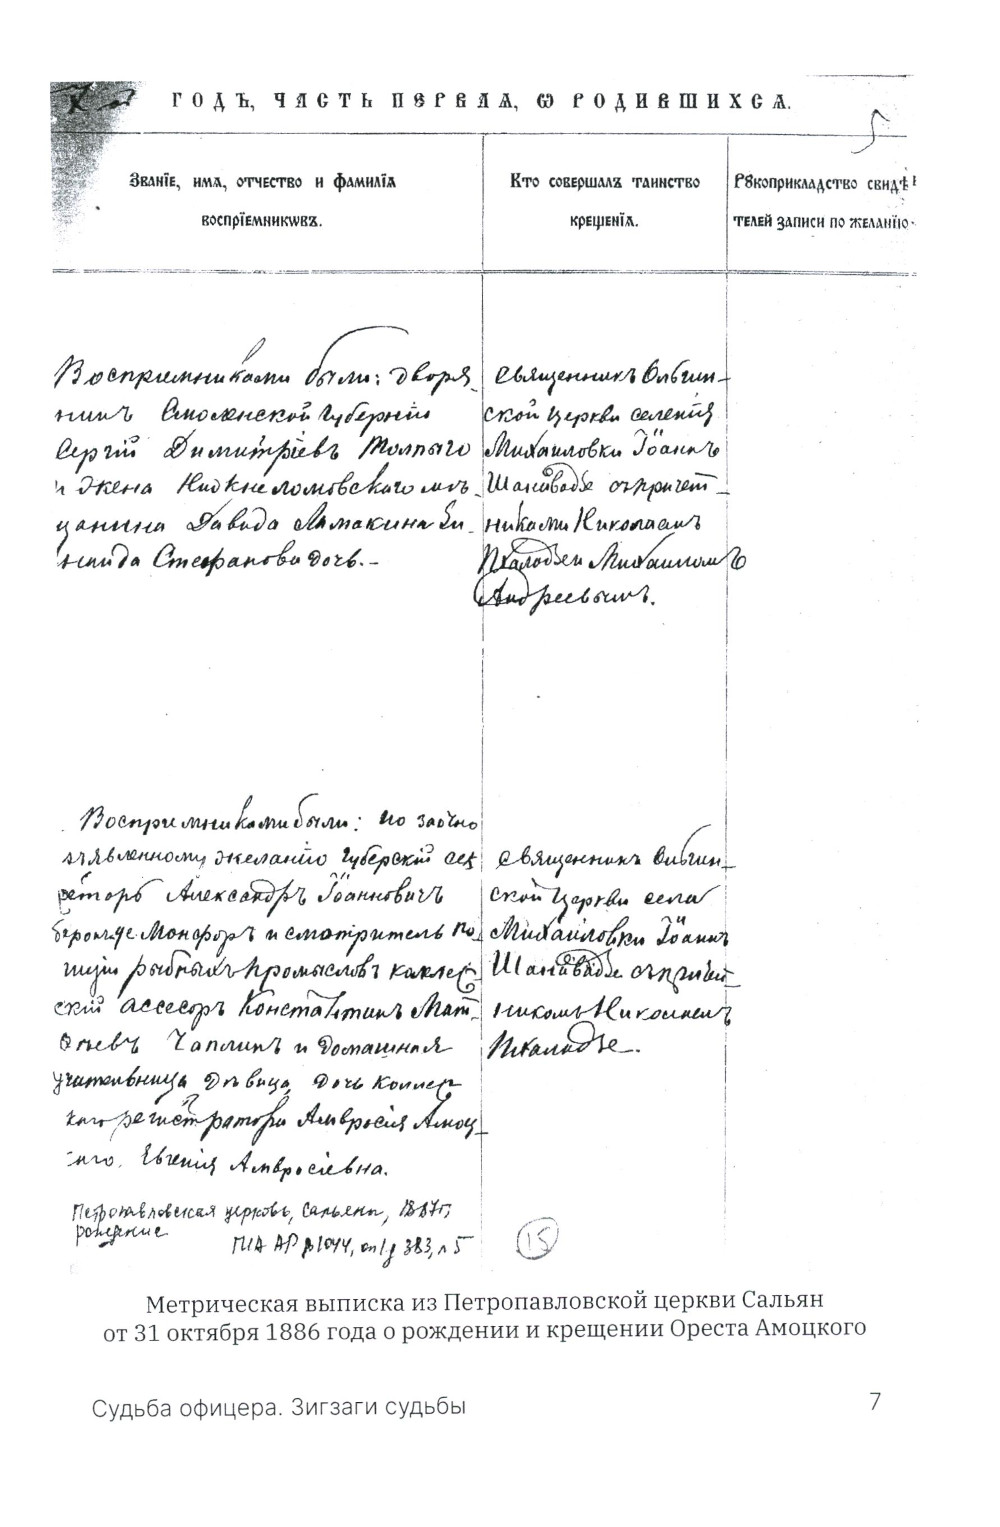 ГОДЪ, ЧАСТЬ ПЕРВАЯ, Ѡ РОДИВШИХСѦ.
Званїе, имѧ, отчество и фамилїѧ
воспрїемникѡвъ.
Кто совершалъ таинство
крещенїѧ.
Рꙋкоприкладство свидѣ
телей записи по желанїю
Воспріемниками были: дворя-
нинъ Смоленской губерніи
Сергій Димитріевъ Толпыго
и жена Нижнеломовскаго мѣ-
щанина Давида Ламакина Зи-
наида Стефанова дочь.-
Священникъ Ольгин-
ской церкви селенія
Михайловки Іоаннъ
съ причет-
никами Николаемъ
Михаиломъ
Андреевымъ.
Воспріемниками были: по заочно
изъявленному желанію губерскій сек
ретарь Александръ Іоанновичъ
Монфоръ и смотритель по-
лиціи рыбныхъ промысловъ коллеж-
скій ассесоръ Константинъ Мат-
ѳѣевъ Чаплинъ и домашняя
учительница дѣвица, дочь коллеж
скаго регистратора Амвросія Амоц-
каго, Евгенія Амвросіевна.
Священникъ Ольгин-
ской церкви села
Михайловки Іоаннъ
съ причет-
никомъ Николаемъ
Петропавловская церковь, Сальяны, 1887г,
рождение
ГИА АР ф1044, оп1 д 383, л 5
15
Метрическая выписка из Петропавловской церкви Сальян
от 31 октября 1886 года о рождении и крещении Ореста Амоцкого
Судьба офицера. Зигзаги судьбы
7